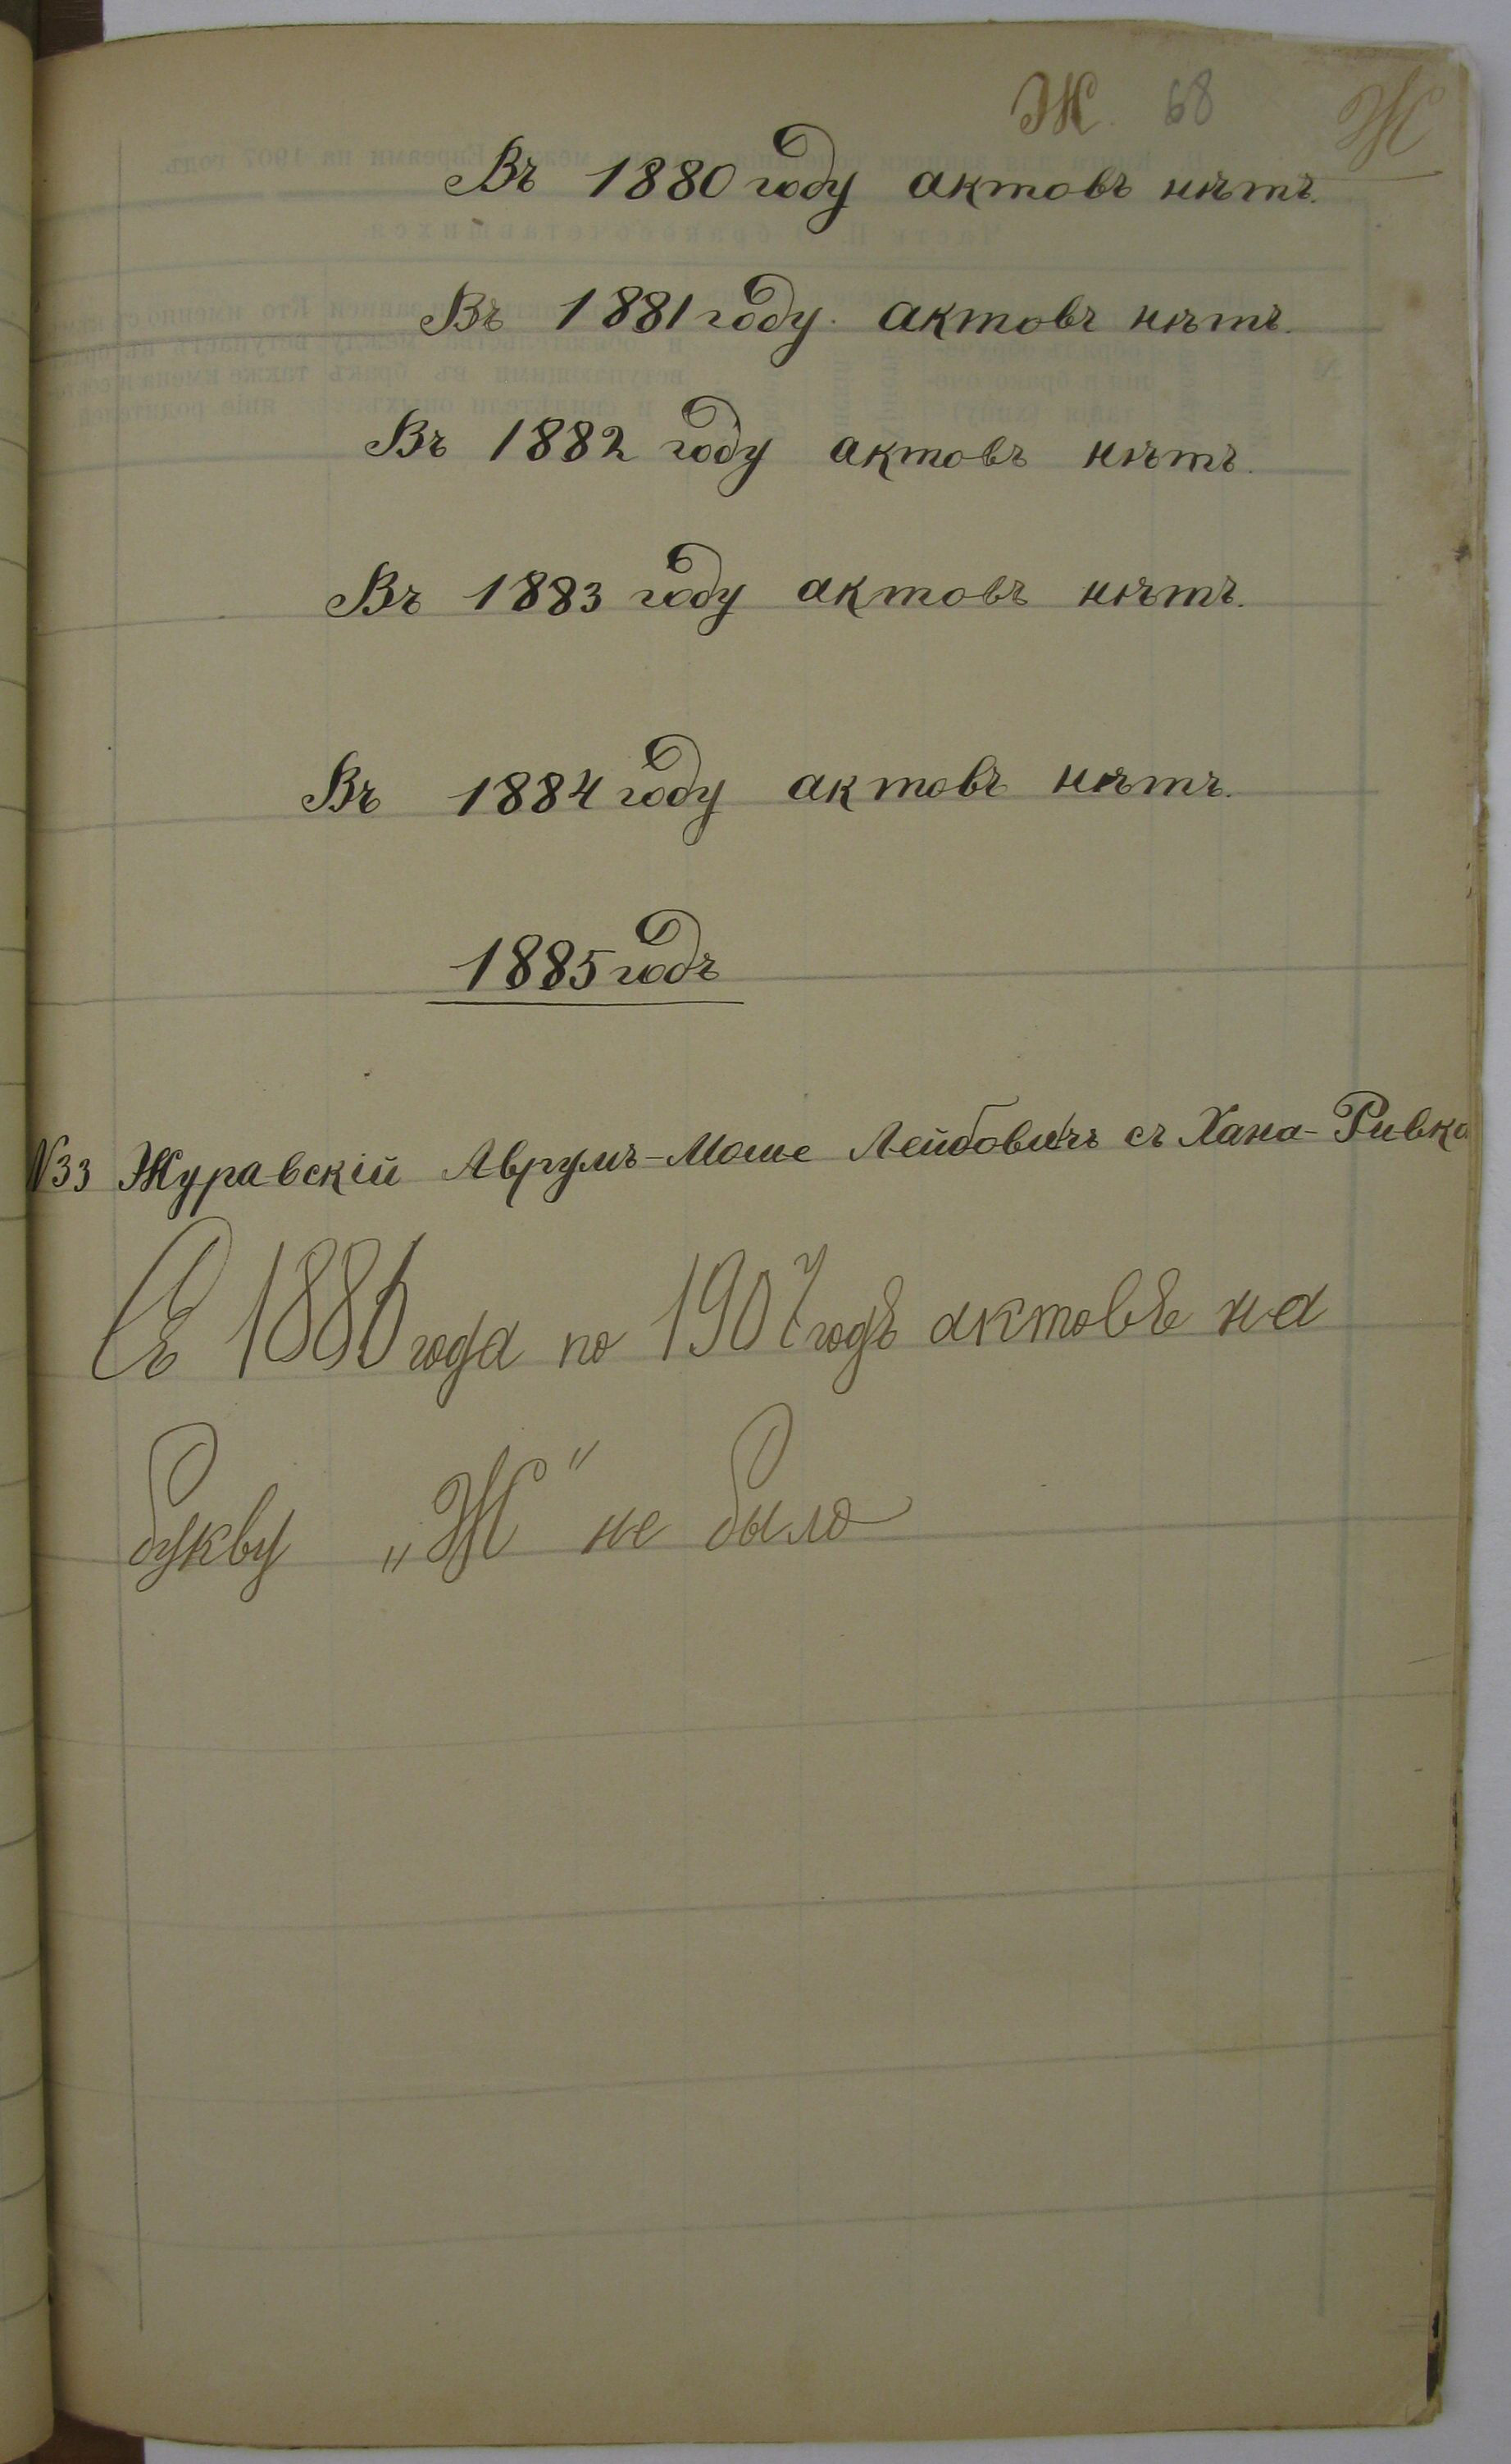 Ж. 68 Ж
Въ 1880 году актовъ нѣтъ.
Въ 1881 году. актовъ нѣтъ.
Въ 1882 году актовъ нѣтъ.
Въ 1883 году актовъ нѣтъ.
Въ 1884 году актовъ нѣтъ.
1885 годъ
№33 Журавскій Аврумъ-Моше Лейбовичъ съ Хана-Ривка
Съ 1886 года по 1907 годъ актовъ на
букву „Ж" не было